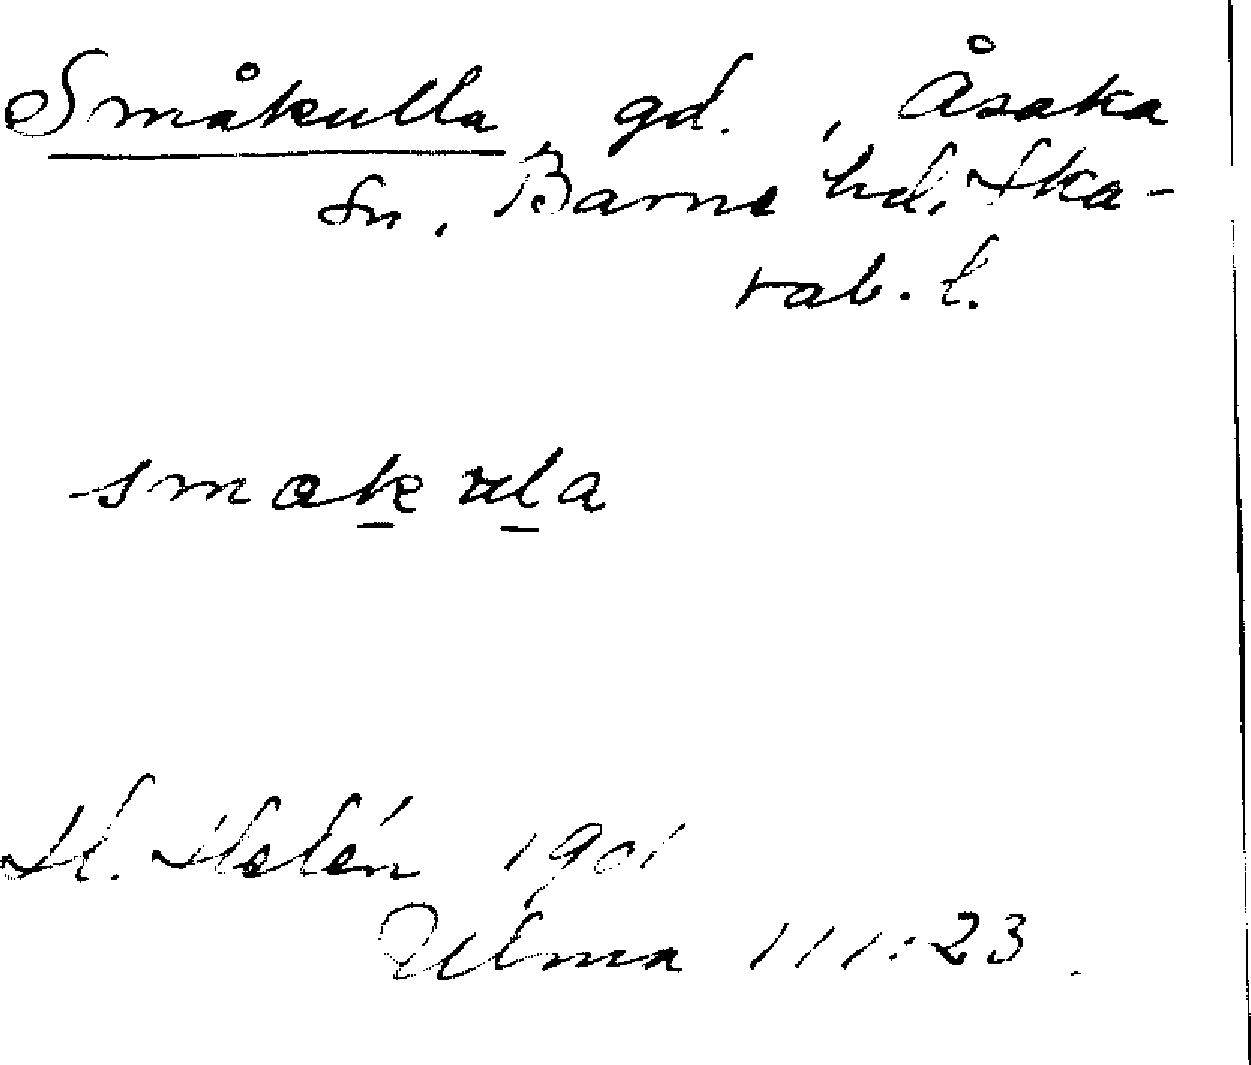 Småkulla gd. , Åsaka
sn. Barne hd. Ska-
rab. l.
smakula
H. Helén 1901
Ulma 111:23.